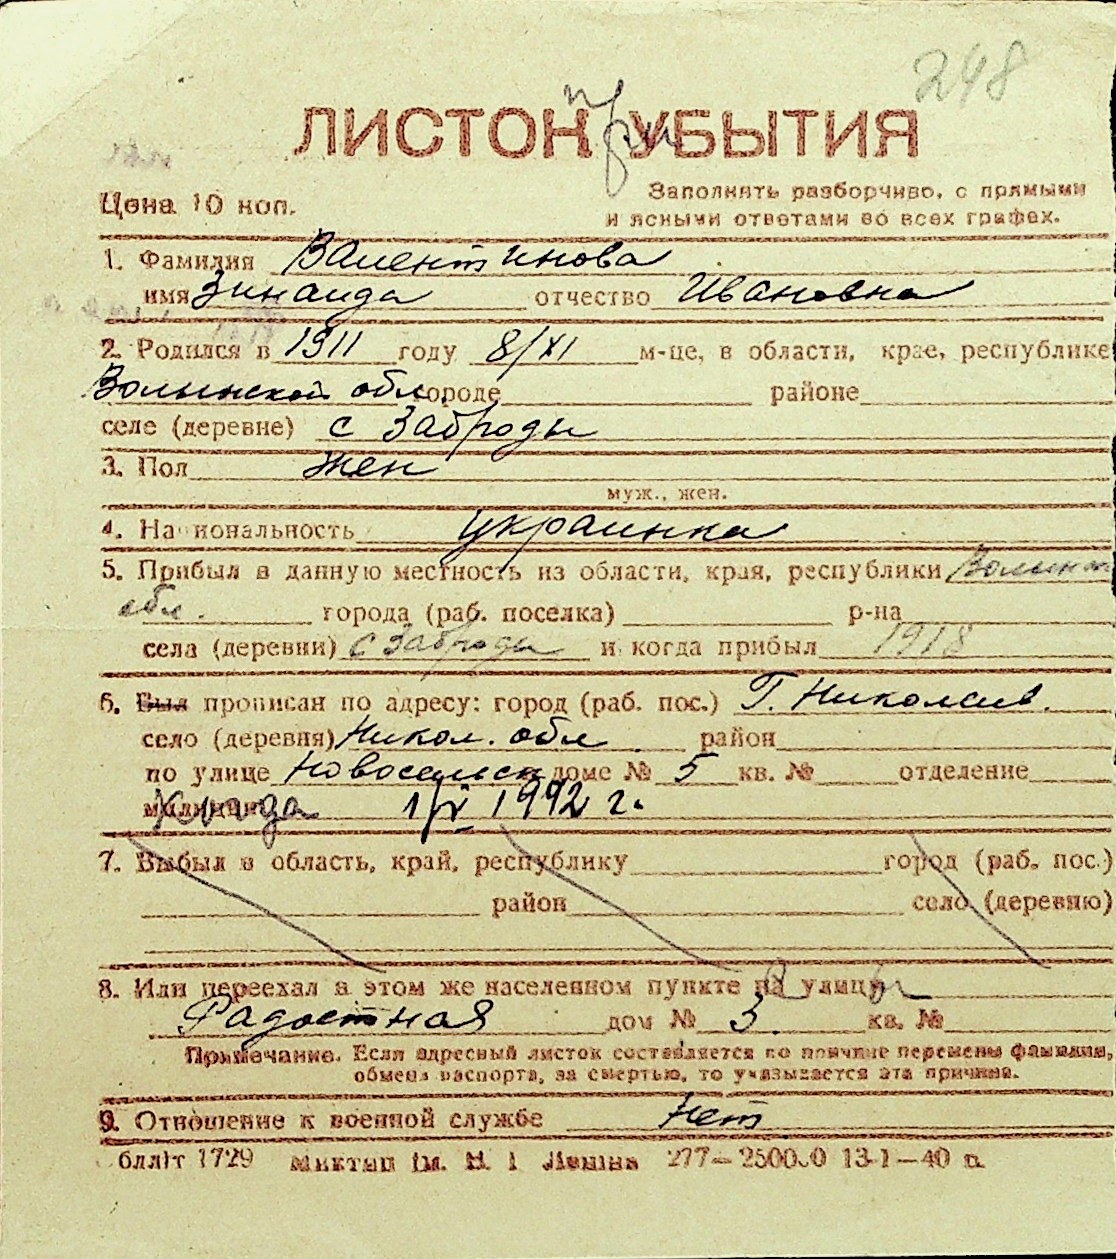 248
ЛИСТОК при УБЫТИЯ
Цена 10 коп.
Заполнять разборчиво, с прямыми
и ясными ответами во всех графах.
1. Фамилия Валентинова
имя Зинаида отчество Ивановна
2. Родился в 1911 году 8/XI м-це, в области, крае, республике
Волынской обл. городе районе
селе (деревне) с Заброды
3. Пол жен
муж., жен.
4. Национальность украинка
5. Прибыл в данную местность из области, края, республики Волынск
обл. города (раб. поселка) р-на
села (деревни) с Заброды и когда прибыл 1918
6. Был прописан по адресу: город (раб. пос.) Г. Николаив.
село (деревня) Никол. обл район
по улице Новосельск доме № 5 кв. № отделение
милиции когда 1/V 1942 г.
7. Выбыл в область, край, республику город (раб. пос.)
район село (деревню)
8. Или переехал в этом же населенном пункте на улицу
Радостная дом № 3. кв. №
Примечание. Если адресный листок составляется по причине перемены фамилии,
обмена паспорта, за смертью, то указывается эта причина.
9. Отношение к военной службе Нет
1729 277— 13-1—40 п.